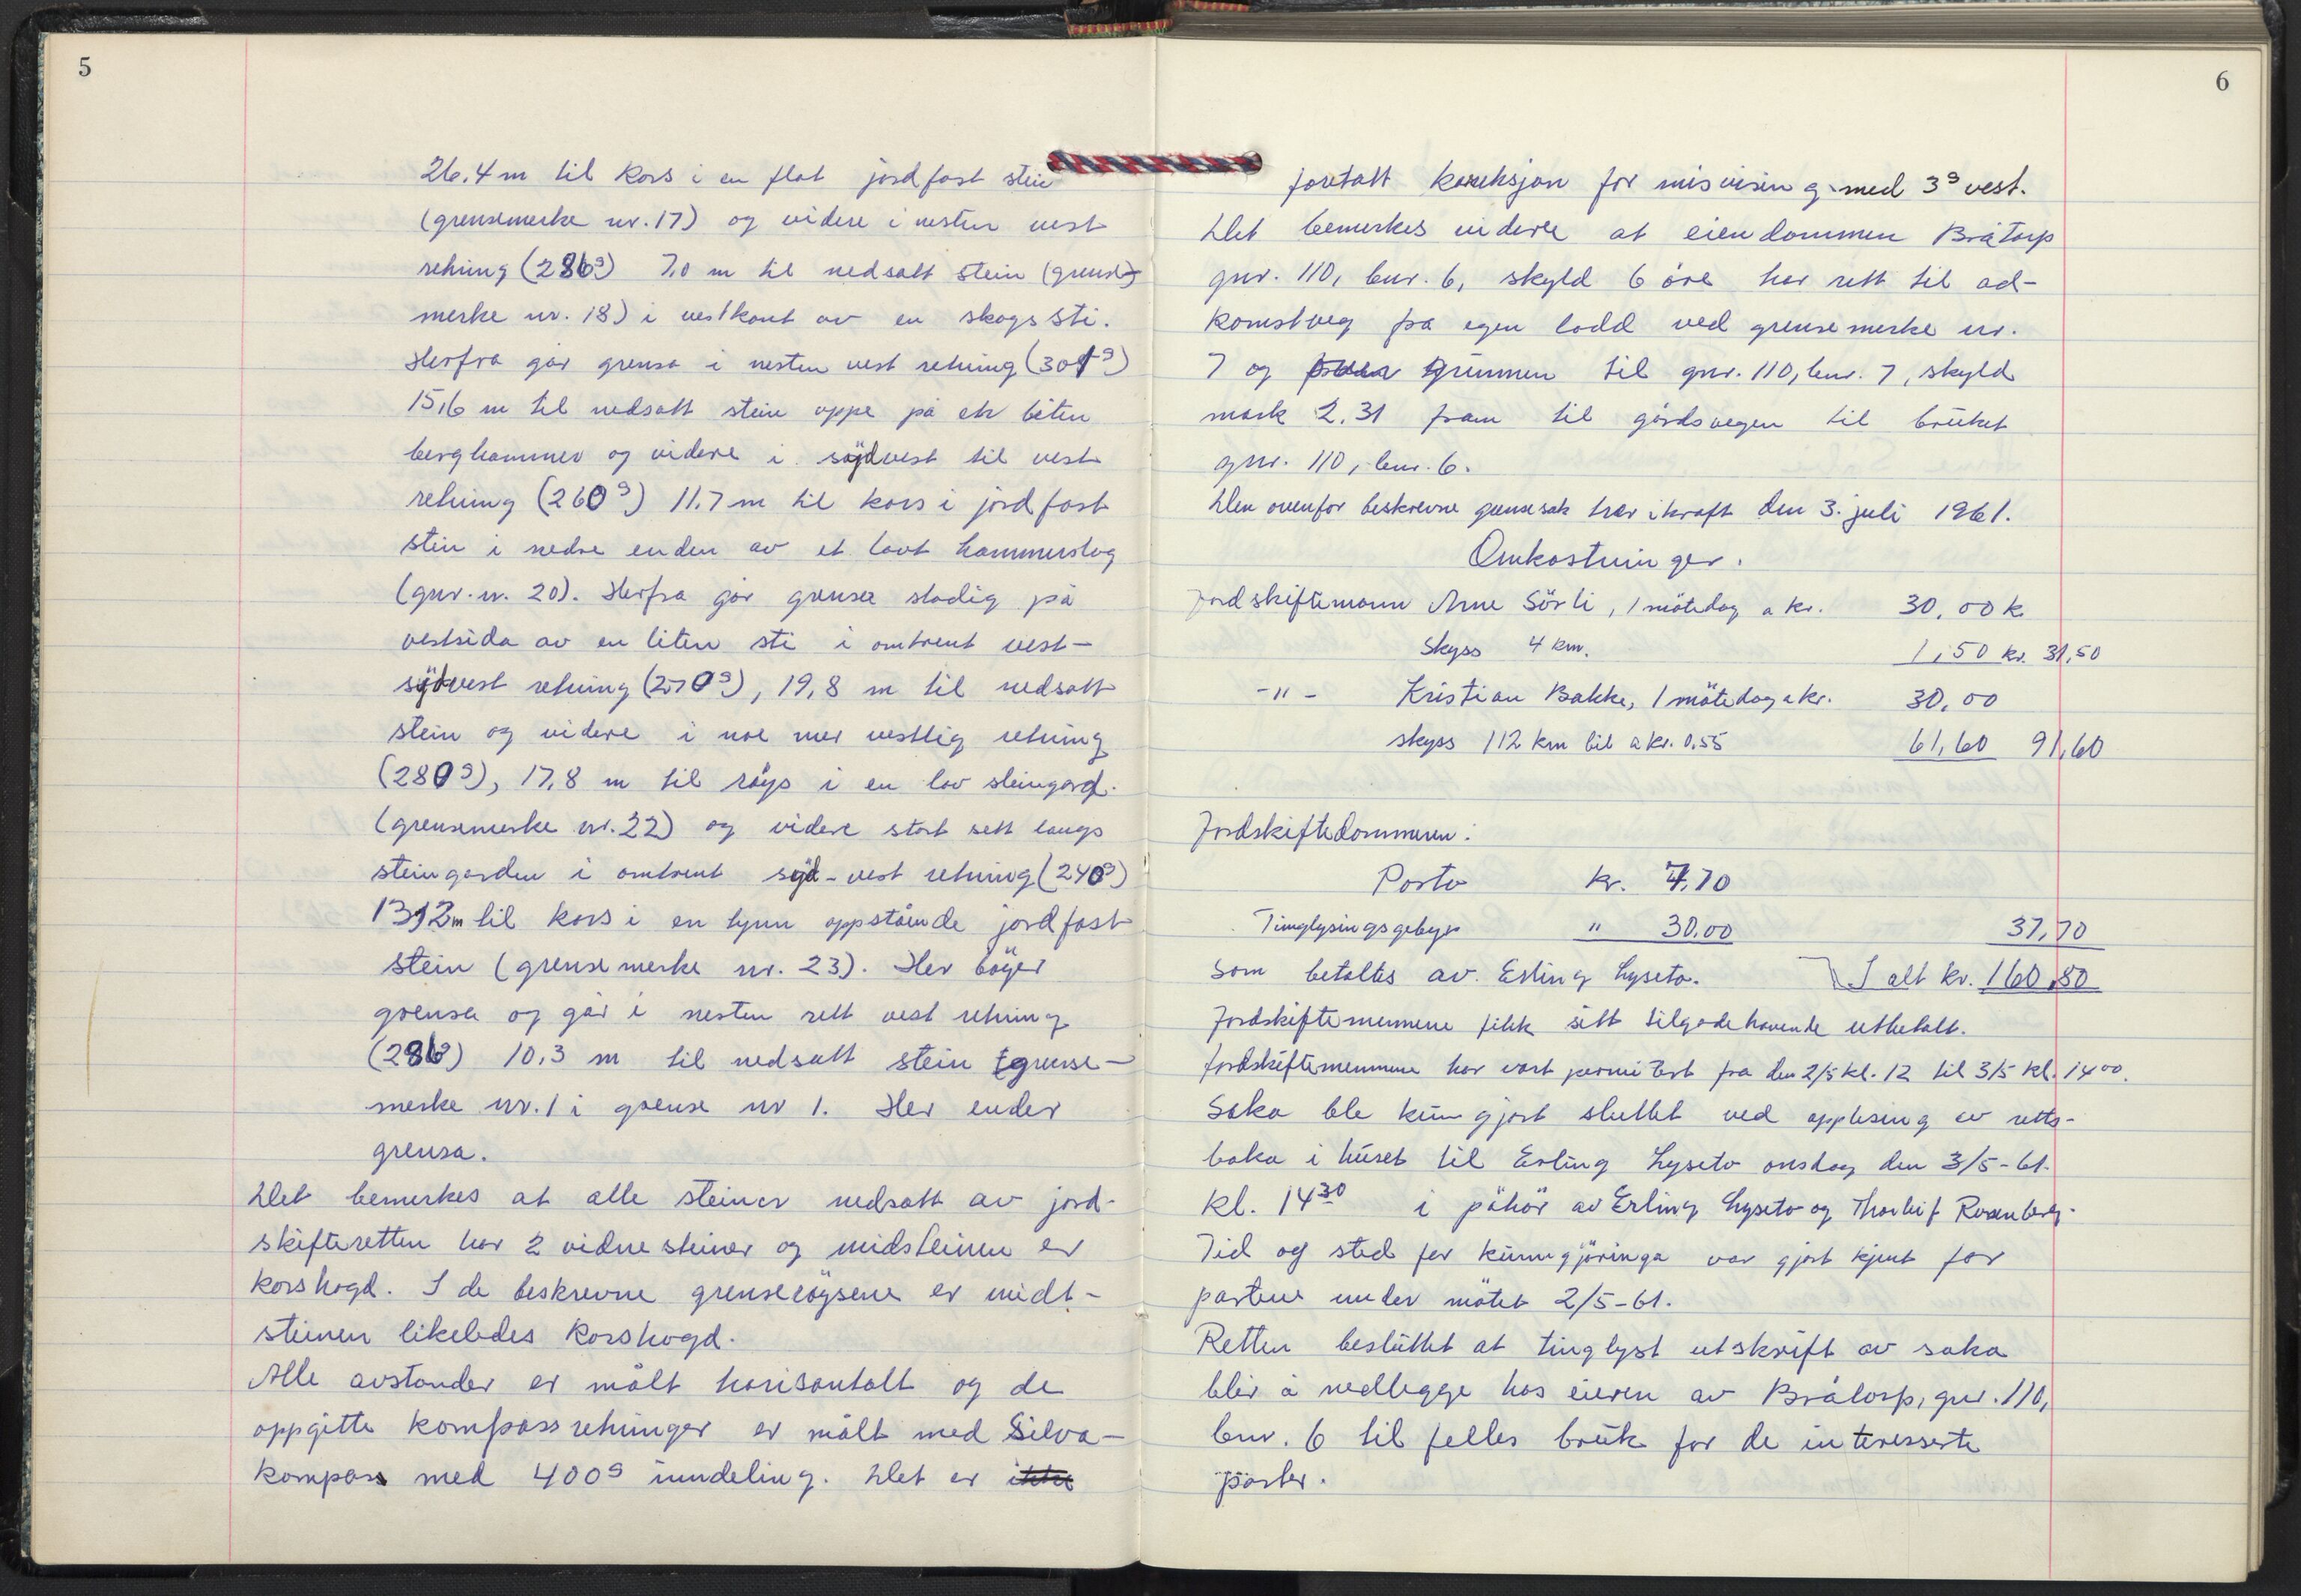 5
26.4 m til kors i en flat jordfast stein
(grensemerke nr. 17) og videre i nesten vest
retning (286g) 7,0 m til nedsatt stein (grense-
merke nr. 18) i vestkant av en skogssti.
Herfra går grensa i nesten vest retning (301g)
15,6 m til nedsatt stein oppe på en liten
berghammer og videre i sydvest til vest
retning (260g) 11.7 m til kors i jordfast
stein i nedre enden av et lavt hammerslag
(gnr. nr. 20). Herfra går grensa stadig på
vestsida av en liten sti i omtrent vest-
sydvest retning (270g), 19,8 m til nedsatt
stein og videre i noe mer vestlig retning
(280g), 17,8 m til röys i en lav steingard.
(grensemerke nr. 22) og videre stort sett langs
steingarden i omtrent syd-vest retning (240g)
13,2 m til kors i en tynn oppstående jordfast
stein (grensemerke nr. 23). Her böyer
grensa og går i nesten rett vest retning
(286g) 10,3 m til nedsatt stein (grense-
merke nr. 1 i grense nr 1. Her ender
grensa.
Det bemerkes at alle steiner nedsatt av jord-
skifteretten har 2 vidnesteiner og midsteinen er
korshogd. I de beskrevne grenseröysene er midt-
steinen likeledes korshogd.
Alle avstander er målt horisontalt og de
oppgitte kompassretninger er målt med Silva-
kompass med 400g inndeling. Det er ikke
6
foretatt koreksjon for misvising med 3g vest.
Det bemerkes videre at eiendommen Bråtorp
gnr. 110, bnr. 6, skyld 6 öre har rett til ad-
komstveg fra egen lodd ved grensemerke nr.
7 og grunnen til gnr. 110, bnr. 7, skyld
mark 2.31 fram til gårdsvegen til bruket
gnr. 110, bnr. 6.
Den ovenfor beskrevne grensesak trer i kraft den 3. juli 1961.
Omkostninger.
Jordskiftemann Arne Sörli, 1 mötedag a kr. 30,00 k
Skyss 4 km. 1,50 kr. 31,50
-"- Kristian Bakke, 1 mötedag a kr. 30,00
skyss 112 km bil a kr. 0.55 61,60 91,60
Jordskiftedommeren:
Porto kr. 7,70
Tinglysingsgebyr " 30.00 37,70
som betaltes av Erling Lyseto. I alt kr. 160,80
Jordskiftemennene fikk sitt tilgodehavende utbetalt.
Jordskiftemennene har vært permitert fra den 2/5 kl. 12 til 3/5 kl. 14 00.
Saka ble kunngjort sluttet ved opplesing av retts-
boka i huset til Erling Lyseto onsdag den 3/5-61.
kl. 14 30 i påhör av Erling Lyseto og Thorleif Rosenberg.
Tid og sted for kunngjöringa var gjort kjent for
partene under mötet 2/5-61.
Retten besluttet at tinglyst utskrift av saka
blir å nedlegge hos eieren av Bråtorp, gnr. 110,
bnr. 6 til felles bruk for de interesserte
parter.